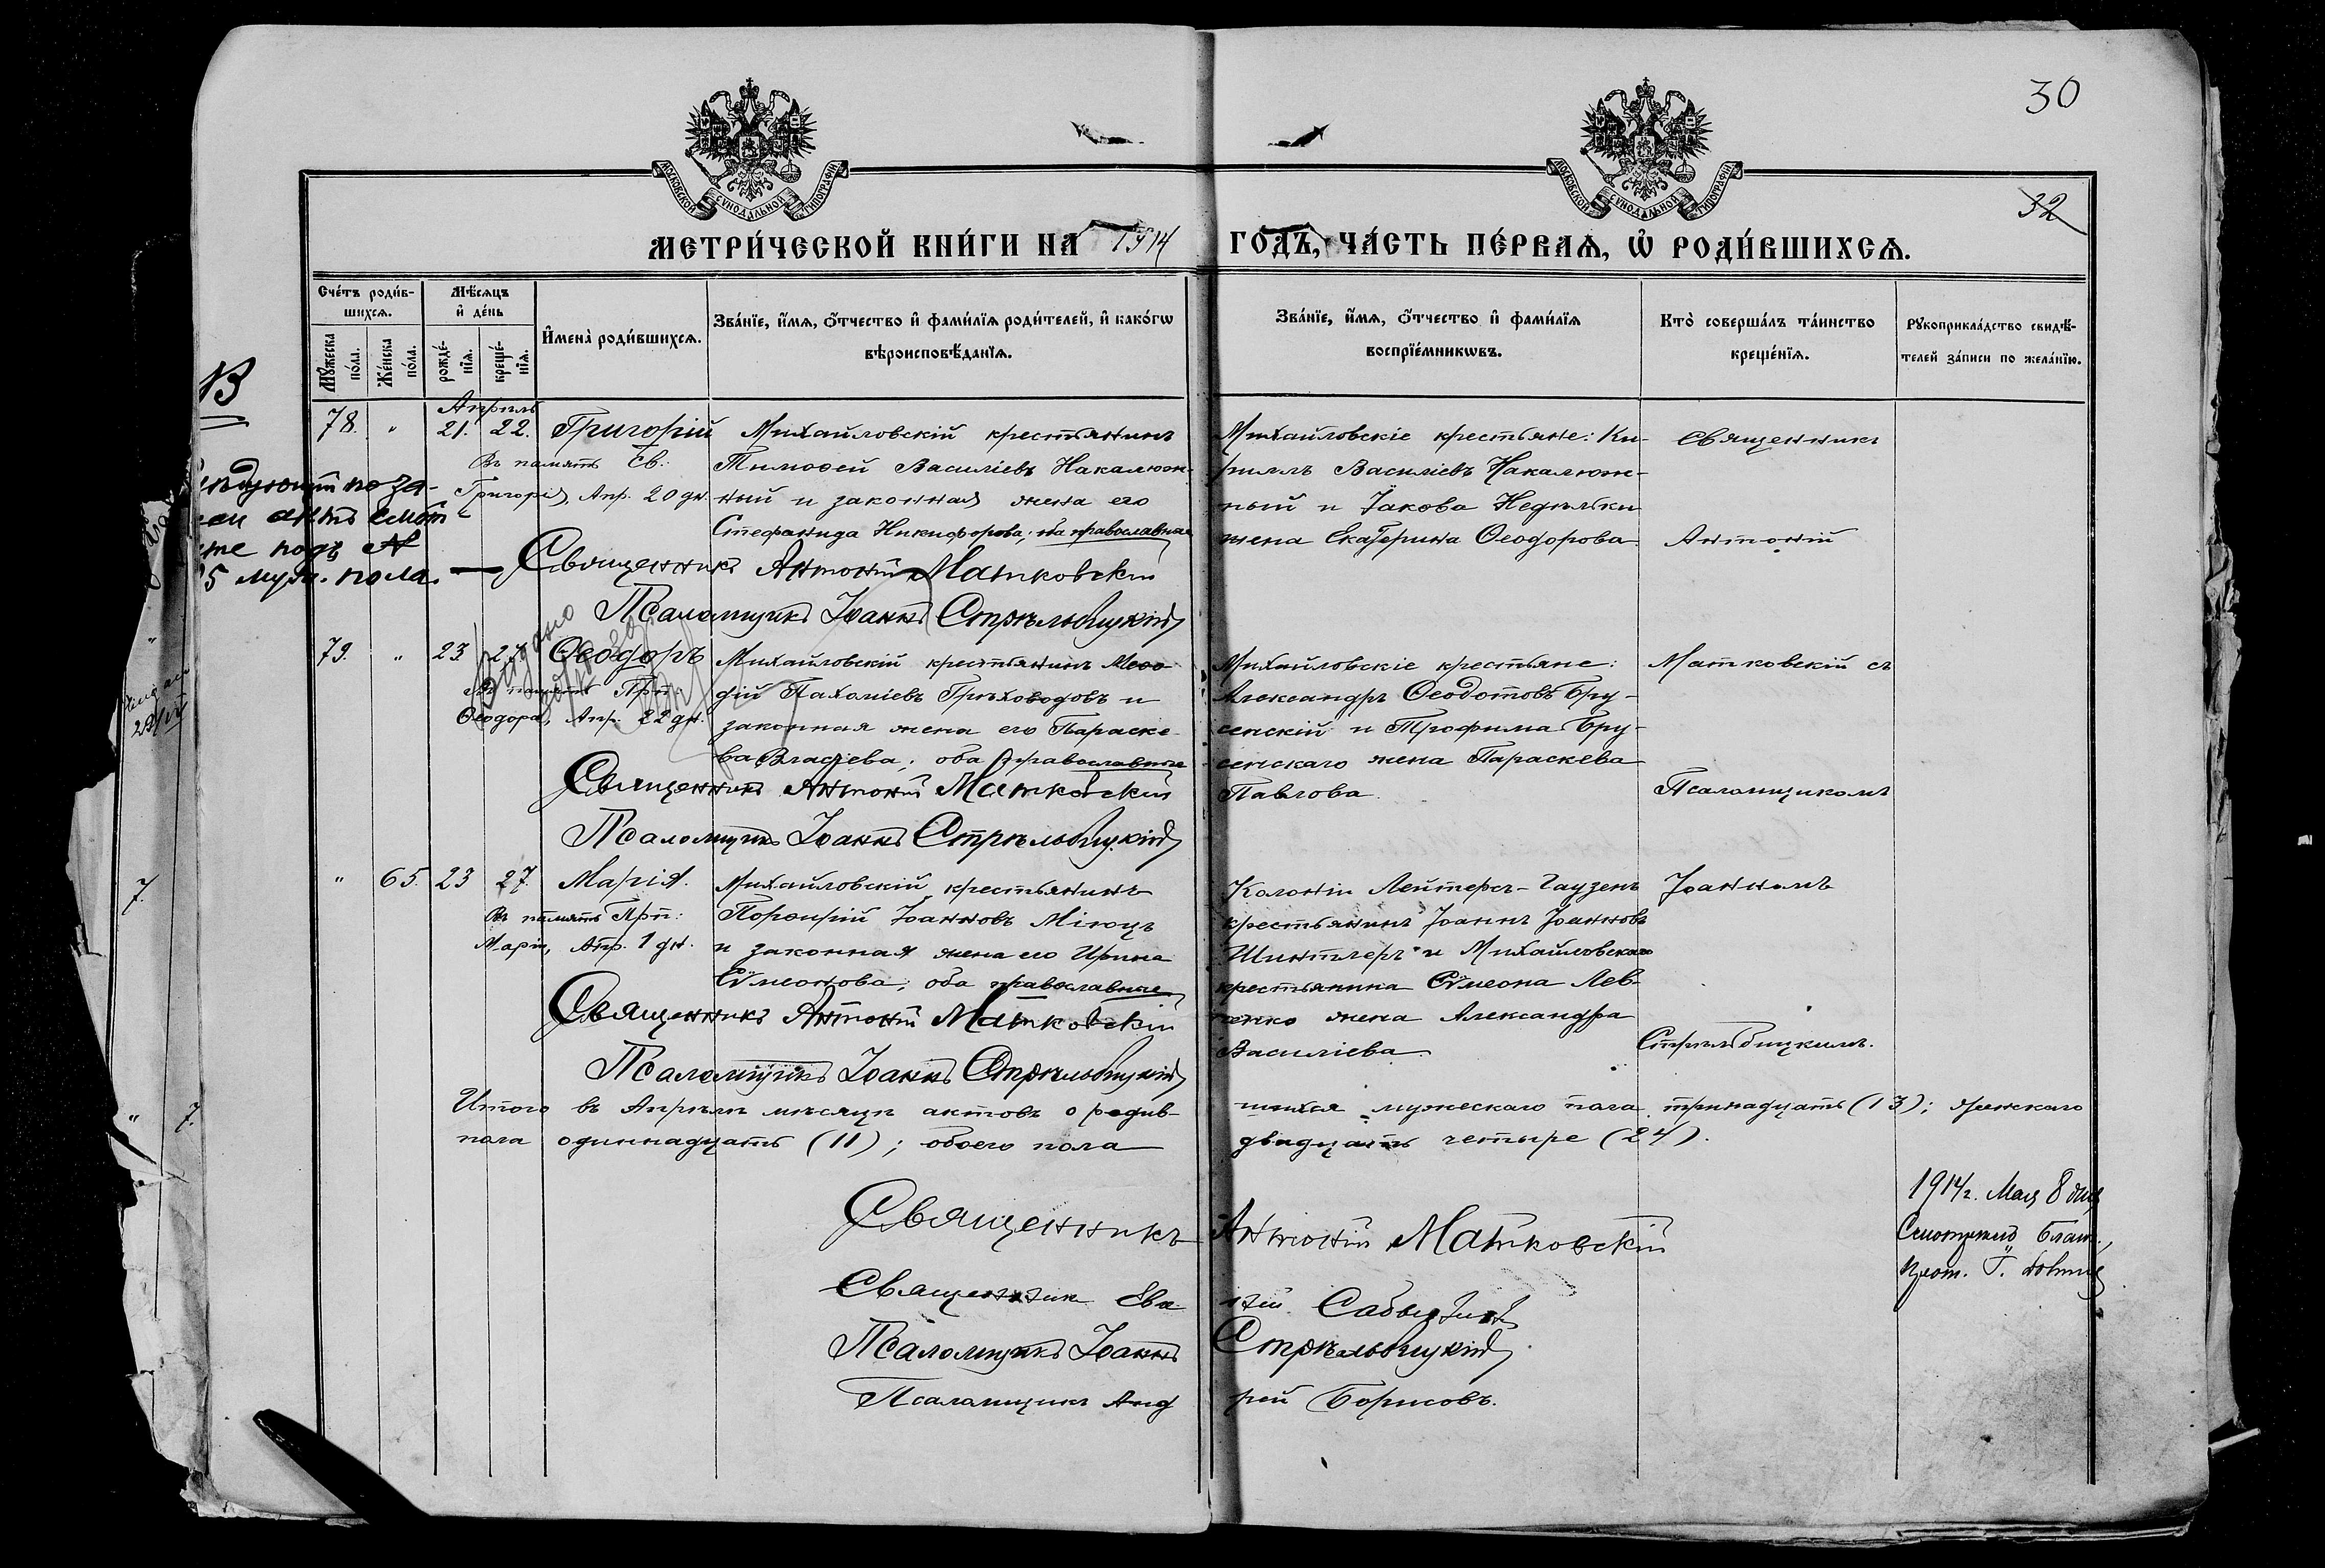 30
32
МОСКОВСКОЙ СѴНОДАЛЬНОЙ ТИПОГРАФІИ
МОСКОВСКОЙ СѴНОДАЛЬНОЙ ТИПОГРАФІИ
МЕТРИ́ЧЕСКОЙ КНИ́ГИ НА 1914 ГОДЪ, ЧА́СТЬ ПЕ́РВАѦ, Ѡ҆ РОДИ́ВШИХСѦ.
Сче́тъ роди́в-
шихсѧ.
Мꙋ́жеска по́ла.
Же́нска по́ла.
Мѣ́сѧцъ
и҆ де́нь
рожде́-
нїѧ.
креще́-
нїѧ.
И҆мена̀ роди́вшихсѧ.
Зва́нїе, и҆́мѧ, ѻ҆́тчество и҆ фами́лїѧ роди́телей, и҆ како́гѡ
вѣроисповѣ́данїѧ.
Зва́нїе, и҆́мѧ, ѻ҆́тчество и҆ фами́лїѧ
воспрїе́мникѡвъ.
Кто̀ соверша́лъ та́инство
креще́нїѧ.
Рꙋкоприкла́дство свидѣ́-
телей за́писи по жела́нїю.
В
по за-
подъ №
5 муж. пола.
Апрѣль
78. " 21. 22. Григорій
Въ память Св.:
Григорія, Апр. 20 дн.
Михайловскій крестьянинъ
Тимоѳей Василіевъ Накалюж-
ный и законная жена его
Стефанида Никифорова; оба православные
Михайловскіе крестьяне: Ки-
риллъ Василіевъ Накалюж-
ный и Іакова Недѣльки
жена Екатерина Ѳеодорова.
Священникъ
Антоній
Священникъ Антоній Матковскій
Псаломщикъ Іоаннъ Стрѣльбицкій
79. " 23 27 Ѳеодоръ
Въ память Прп.
Ѳеодора, Апр. 22 дн.
Выдано
Михайловскій крестьянинъ Меѳо-
дій Пахоміевъ Грѣховодовъ и
законная жена его Параске-
ва Власіева; оба православные
Михайловскіе крестьяне:
Александръ Ѳеодотовъ Бру-
сенскій и Трофима Бру-
сенскаго жена Параскева
Павлова.
Матковскій съ
Псаломщикомъ
Священникъ Антоній Матковскій
Псаломщикъ Іоаннъ Стрѣльбицкій
" 65. 23 27. Марія.
Въ память Прп:
Маріи, Апр. 1 дн.
Михайловскій крестьянинъ
Порфирій Іоанновъ Міюцъ
и законная жена его Ирина
Сѵмеонова; оба православные
Колоніи Лейтерс-Гаузенъ
крестьянинъ Іоаннъ Іоанновъ
Шинтлеръ и Михайловскаго
крестьянина Сѵмеона Лев-
ченко жена Александра
Василіева.
Іоанномъ
Стрѣльбицкимъ.
Священникъ Антоній Матковскій
Псаломщикъ Іоаннъ Стрѣльбицкій
7.
" 7.
Итого въ Апрѣлѣ мѣсяцѣ актовъ о родив-шихся мужескаго пола тринадцать (13); женскаго
пола одиннадцать (11); обоего пола двадцать четыре (24).
Священникъ Антоній Матковскій
1914 г. Мая 8 дня
Благ.,
Прот. Г.
Священник
Псаломщикъ Іоаннъ Стрѣльбицкій
Псаломщикъ Андрей Борисовъ.